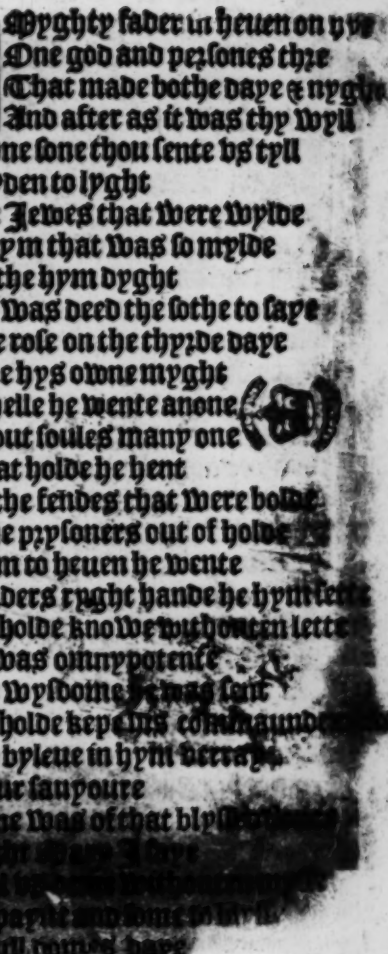 Myghty fader in heuen on hye
One god and persones thre
That made bothe daye & nyght
And after as it was thy wyll
ne sone thou sente vs tyll
yden to lyght
Jewes that were wylde
ym that was so mylde
the hym dyght
was deed the sothe to saye
e rose on the thyrde daye
e hys owne myght
helle he wente anone
out soules many one
at holde he hent
the fendes that were bolde
e prysoners out of holde
m to heuen he wente
ders ryght hande he hym sette
holde knowe withouten lette
was omnypotente
wysdome he was sent
holde kepe his commaunde
byleue in hym verray
ur sauyoure
he was of that
I saye
payne and
daye